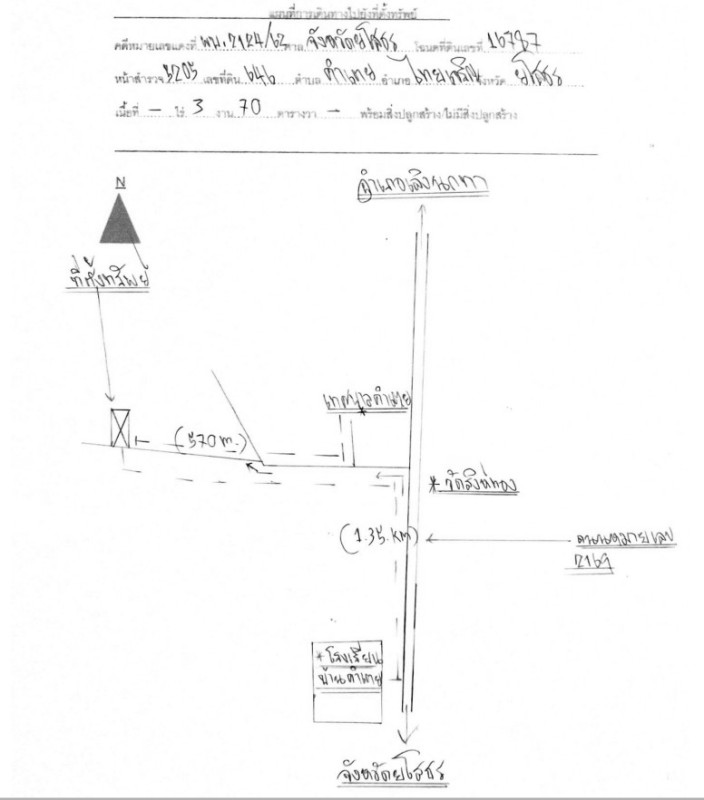 แผนที่การเดินทางไปยังที่ตั้งทรัพย์
คดีหมายเลขแดงที่ ผบ.2124/62 ศาล จังหวัดยโสธร โฉนดที่ดินเลขที่ 16787
หน้าสำรวจ 3205 เลขที่ดิน 646 ตำบล คำเตย อำเภอ ไทยเจริญ จังหวัด ยโสธร
เนื้อที่ - ไร่ 3 งาน 70 ตารางวา - พร้อมสิ่งปลูกสร้าง/ไม่มีสิ่งปลูกสร้าง
อำเภอเลิงนกทา
N
ที่ตั้งทรัพย์
เทศบาลคำเตย
(570 m.)
* วัดสิงห์ทอง
(1.35 km)
ทางหลวงหมายเลข
2169
* โรงเรียน
บ้านคำเตย
จังหวัดยโสธร